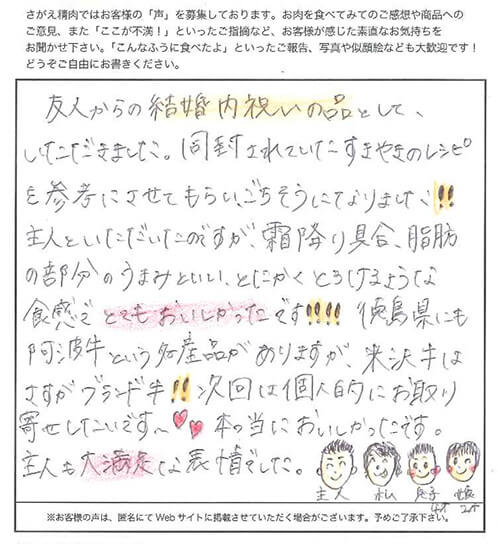 さがえ精肉ではお客様の「声」を募集しております。お肉を食べてみてのご感想や商品への
ご意見、また「ここが不満！」といったご指摘など、お客様が感じた素直なお気持ちを
お聞かせ下さい。「こんなふうに食べたよ」といったご報告、写真や似顔絵なども大歓迎です！
どうぞご自由にお書きください。
友人からの結婚内祝いの品として、
いただきました。同封されていたすきやきのレシピ
を参考にさせてもらい、ごちそうになりました!!
主人といただいたのですが、霜降り具合、脂肪
の部分のうまみといい、とにかくとろけるような
食感でとてもおいしかったです!!!! 徳島県にも
阿波牛という名産品がありますが、米沢牛は
さすがブランド牛!! 次回は個人的にお取り
寄せしたいです〜♥♥ 本当においしかったです。
主人も大満足な表情でした。
主人 私 息子 娘
4才 2才
※お客様の声は、匿名にてWebサイトに掲載させていただく場合がございます。予めご了承下さい。